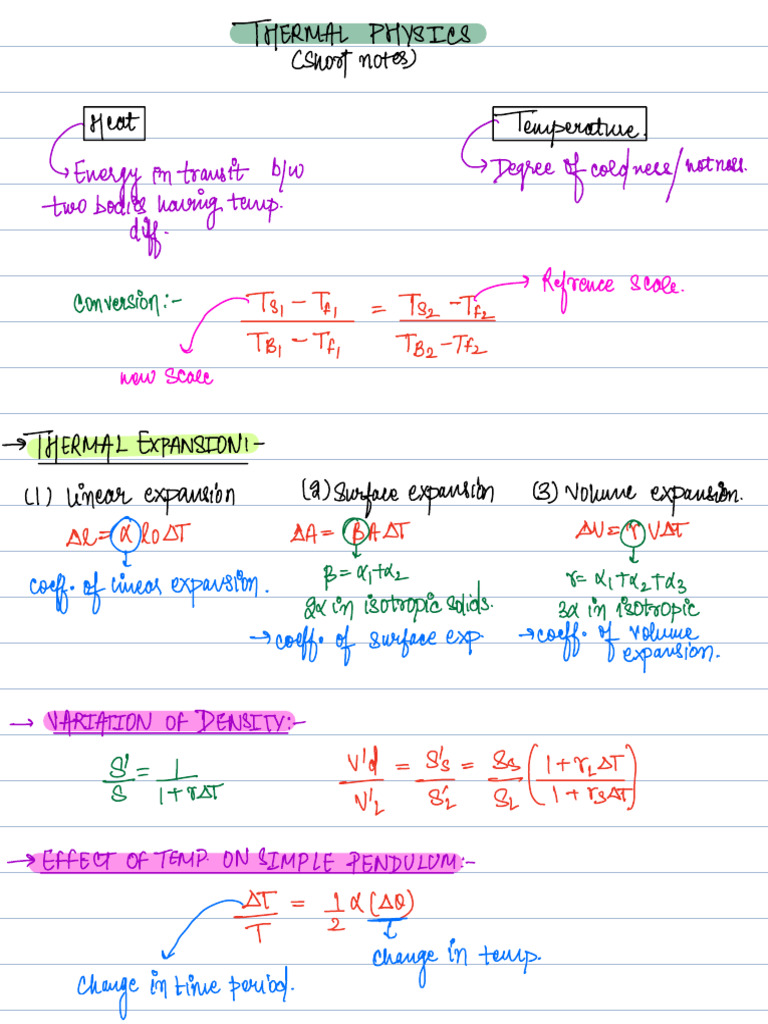 THERMAL PHYSICS
(Short notes)
Heat
Temperature.
Energy in transit b/w
two bodies having temp.
diff.
Degree of coldness/hotness.
Conversion:-
(T_S₁ - T_f₁)/(T_B₁ - T_f₁) = (T_S₂ - T_f₂)/(T_B₂ - T_f₂)
Refrence scale.
new scale
→ THERMAL EXPANSION:-
(1) Linear expansion
Δl = α l₀ ΔT
coeff. of linear expansion.
(2) Surface expansion
ΔA = β A ΔT
β = α₁+α₂
2α in isotropic solids.
→ coeff. of surface exp.
(3) Volume expansion.
ΔV = γ V ΔT
γ = α₁+α₂+α₃
3α in isotropic
→ coeff. of volume
expansion.
→ VARIATION OF DENSITY:-
S'/S = 1/(1+γΔT)
V'd/V'L = S's/S'L = Ss/SL ((1+γLΔT)/(1+γsΔT))
→ EFFECT OF TEMP. ON SIMPLE PENDULUM:-
ΔT/T = 1/2 α (Δθ)
change in temp.
change in time period.